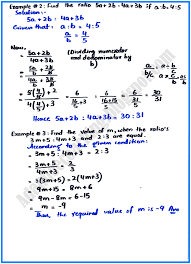 Example # 2: Find the ratio 5a+2b : 4a+3b if a:b=4:5
Solution:
5a+2b : 4a+3b
Given that : a:b = 4:5
a/b = 4/5
Now,
(5a+2b)/(4a+3b) (Dividing numerator and denominator by b)
= 5(4/5)+2 / 4(4/5)+3
Hence 5a+2b : 4a+3b = 30:31
Example # 3: Find the value of m, when the ratio's
3m+5 : 4m+3 and 2:3 are equal.
According to the given condition:
= 3m+5 : 4m+3 = 2:3
= (3m+5)/(4m+3) = 2/3
= (3m+5)3 = 2(4m+3)
= 9m+15 = 8m+6
= 9m-8m = 6-15
= m = -9
Thus, the required value of m is -9 Ans